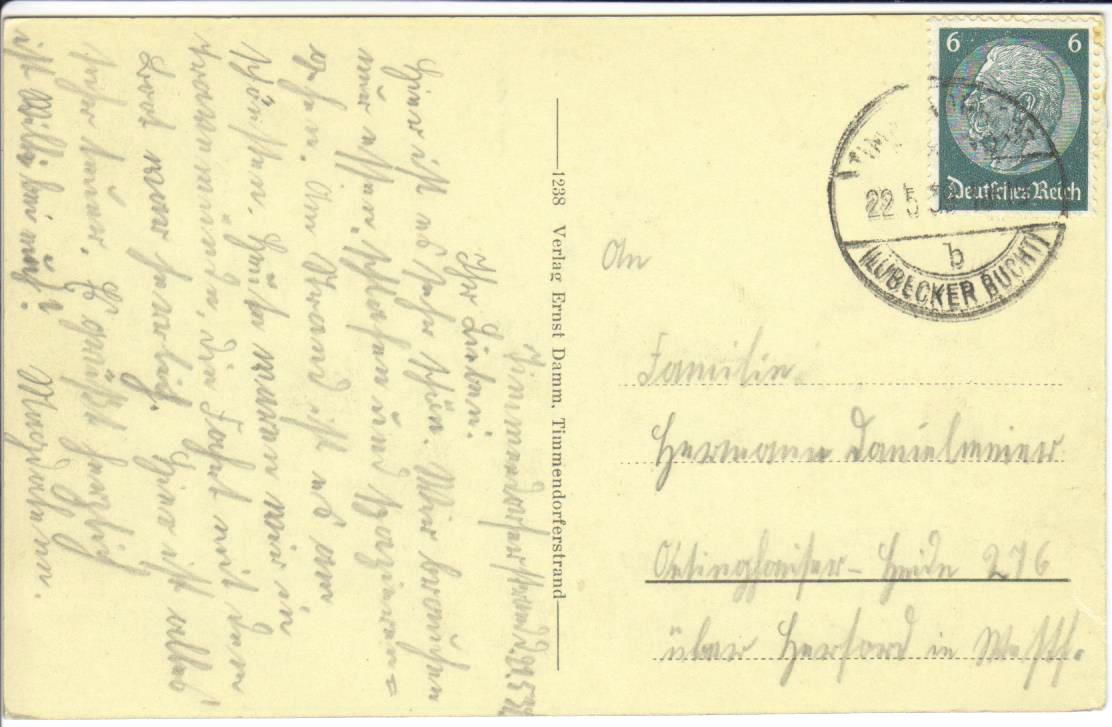 Timmendorferstrand d. 21.5.39
Ihr Lieben.
Hier ist es sehr schön. Wir brauchen
nur essen, schlafen und spazieren=
gehen. Am Strand ist es am
schönsten. Heute waren wir in
Travemünde, die Fahrt mit dem
Boot war herrlich. Hier ist alles
sehr teuer. Es grüßt herzlich
ist Willi bei euch?
1238 Verlag Ernst Damm, Timmendorferstrand
6 6
Deutsches Reich
22 5
b
(LÜBECKER BUCHT)
An
Familie
Hermann Danielmeier
Oetinghauser-Heide 276
über Herford in Westf.